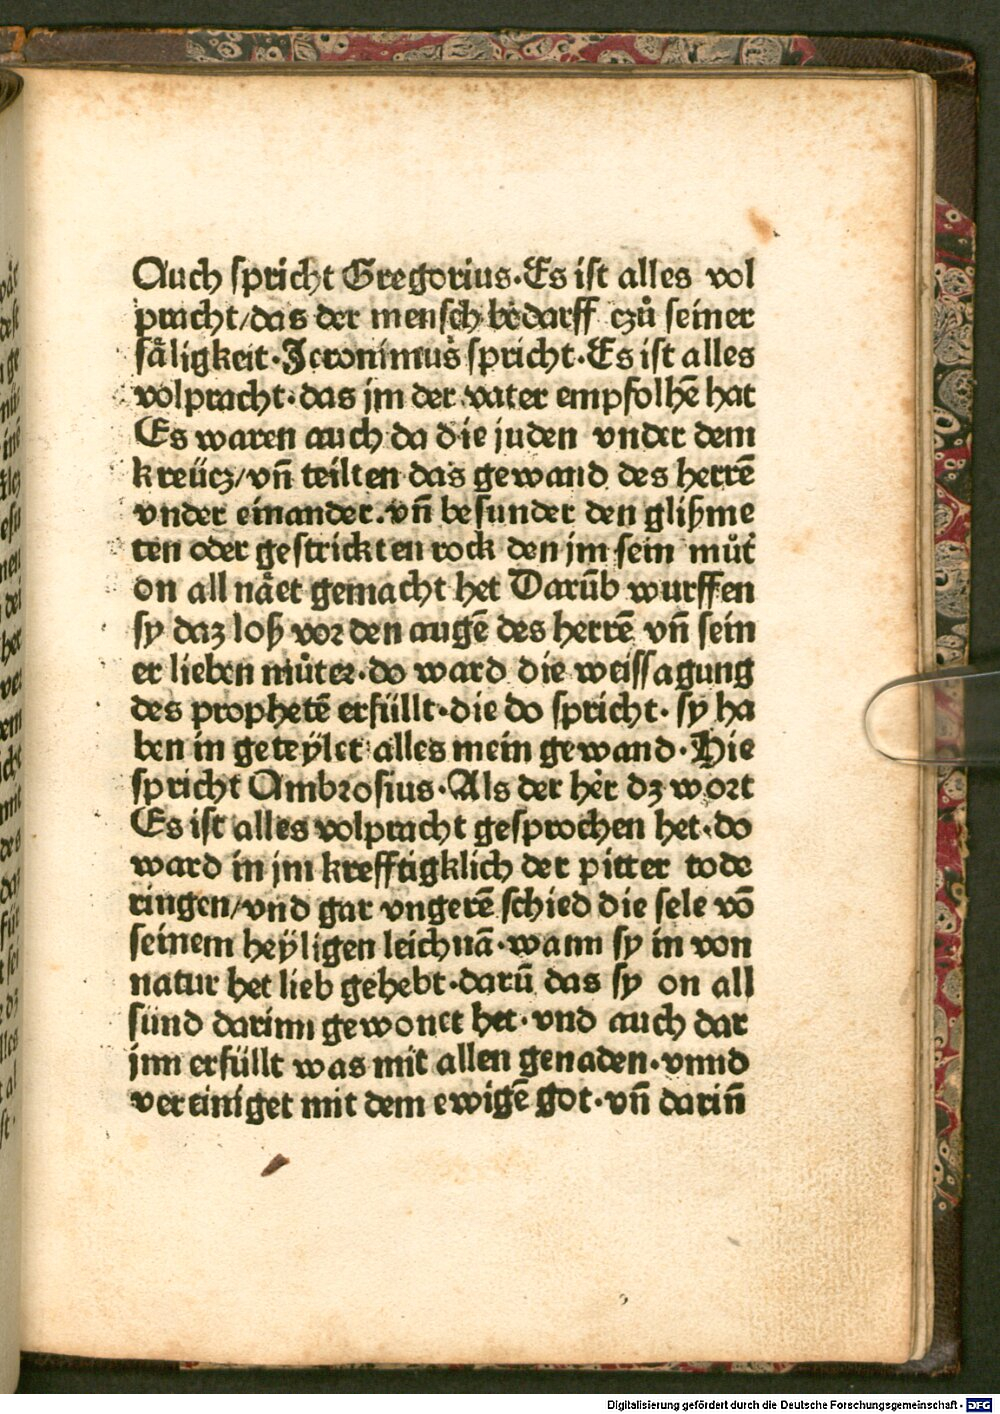 Auch spricht Gregorius·Es ist alles vol
pracht/das der mensch bedarff czů seiner
säligkeit·Jeronimus spricht·Es ist alles
volpracht·das jm der vater empfolhē hat
Es waren auch da die juden vnder dem
kreücz/vn̄ teilten das gewand des herrē
vnder einander.vn̄ besunder den glißme
ten oder gestrickten rock den jm sein můt
on all näet gemacht het Darūb wurffen
sy daz loß vor den augē des herrē vn̄ sein
er lieben můter·do ward die weissagung
des prophetē erfüllt·die do spricht·sy ha
ben in geteÿlet alles mein gewand·Hie
spricht Ambrosius·Als der her dz wort
Es ist alles volpracht gesprochen het·do
ward in jm krefftigklich der pitter tode
ringen/vnd gar vngerē schied die sele vō
seinem heÿligen leichnā·wann sy in von
natur het lieb gehebt·darū das sy on all
sünd darinn gewonet het·vnd auch dar
jnn erfüllt was mit allen genaden·vnnd
vereiniget mit dem ewigē got·vn̄ darin̄
Digitalisierung gefördert durch die Deutsche Forschungsgemeinschaft - DFG